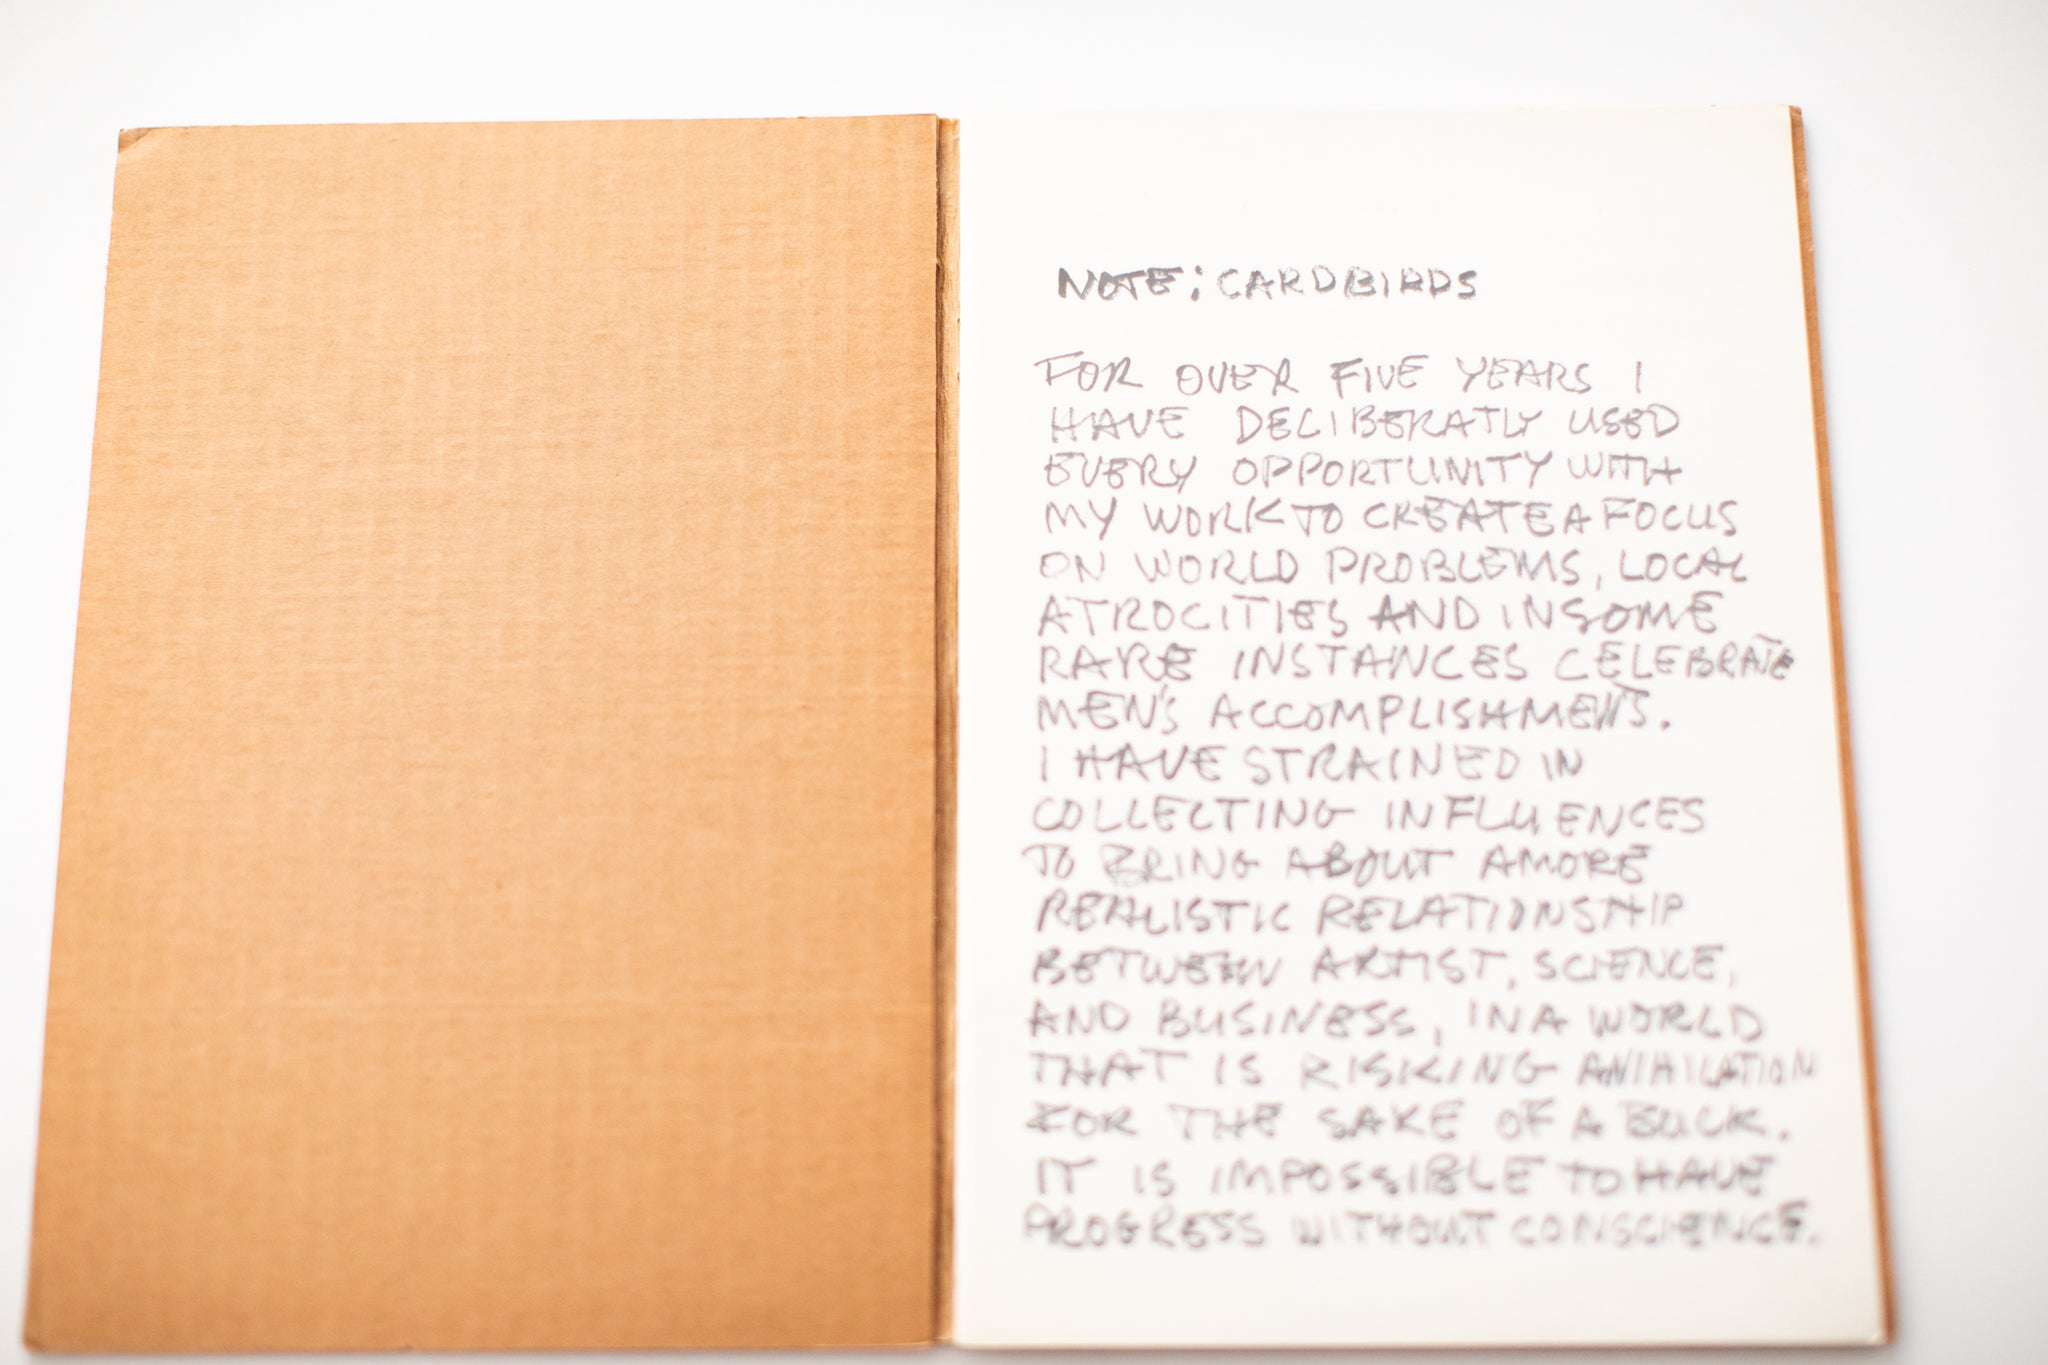 NOTE: CARDBIRDS
FOR OVER FIVE YEARS I
HAVE DELIBERATLY USED
EVERY OPPORTUNITY WITH
MY WORK TO CREATE A FOCUS
ON WORLD PROBLEMS, LOCAL
ATROCITIES AND IN SOME
RARE INSTANCES CELEBRATE
MEN'S ACCOMPLISHMENTS.
I HAVE STRAINED IN
COLLECTING INFLUENCES
TO BRING ABOUT A MORE
REALISTIC RELATIONSHIP
BETWEEN ARTIST, SCIENCE,
AND BUSINESS, IN A WORLD
THAT IS RISKING ANIHILATION
FOR THE SAKE OF A BUCK.
IT IS IMPOSSIBLE TO HAVE
PROGRESS WITHOUT CONSCIENCE.